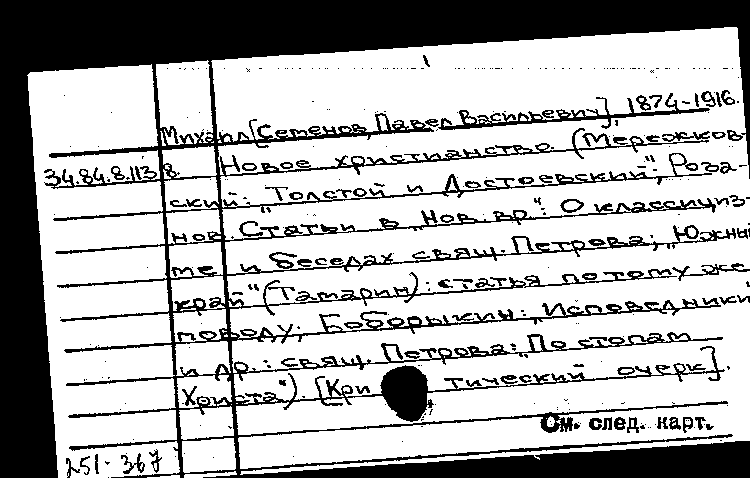 1
Михаил [Семенов, Павел Васильевич], 1874-1916.
34.84.8.113 8. Новое христианство (Мережков-
ский: "Толстой и Достоевский"; Роза-
нов. Статьи в "Нов. вр.": О классициз-
ме и беседах свящ. Петрова; "Южный
край" (Тамарин): статья по тому же
поводу; Боборыкин: "Исповедники"
и др.: свящ. Петрова: "По стопам
Христа"). [Критический очерк].
См. след. карт.
251-367